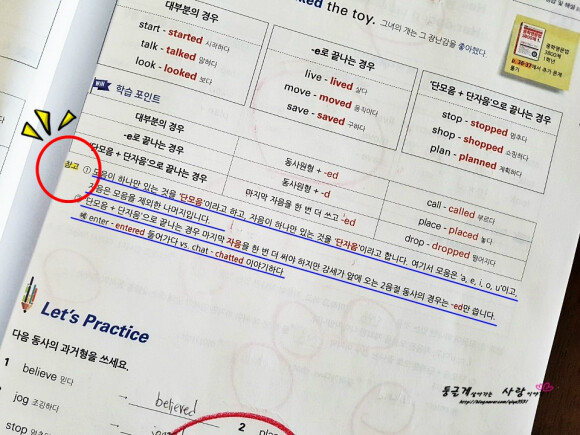 ked the toy. 그녀의 개는 그 장난감을 좋아했다
대부분의 경우
start - started 시작하다
talk - talked 말하다
look - looked 보다
-e로 끝나는 경우
live - lived 살다
move - moved 움직이다
save - saved 구하다
'단모음 + 단자음'으로 끝나는 경우
stop - stopped 멈추다
shop - shopped 쇼핑하다
plan - planned 계획하다
중학영문법
1800제
1학년
에서 추가 문제
풀기
학습 포인트
대부분의 경우
동사원형 + -ed
call - called 부르다
-e로 끝나는 경우
동사원형 + -d
place - placed 놓다
'단모음 + 단자음'으로 끝나는 경우
마지막 자음을 한 번 더 쓰고 -ed
drop - dropped 떨어지다
참고 ① 모음이 하나만 있는 것을 '단모음'이라고 하고, 자음이 하나만 있는 것을 '단자음'이라고 합니다. 여기서 모음은 'a, e, i, o, u'이고,
자음은 모음을 제외한 나머지입니다.
② '단모음 + 단자음'으로 끝나는 경우 마지막 자음을 한 번 더 써야 하지만 강세가 앞에 오는 2음절 동사의 경우는 -ed만 씁니다.
예 enter - entered 들어가다 vs. chat - chatted 이야기하다
Let's Practice
다음 동사의 과거형을 쓰세요.
1 believe 믿다 → believed
2 pla
jog 조깅하다 →
stop 멈추다
둥글게 살아가는 사랑